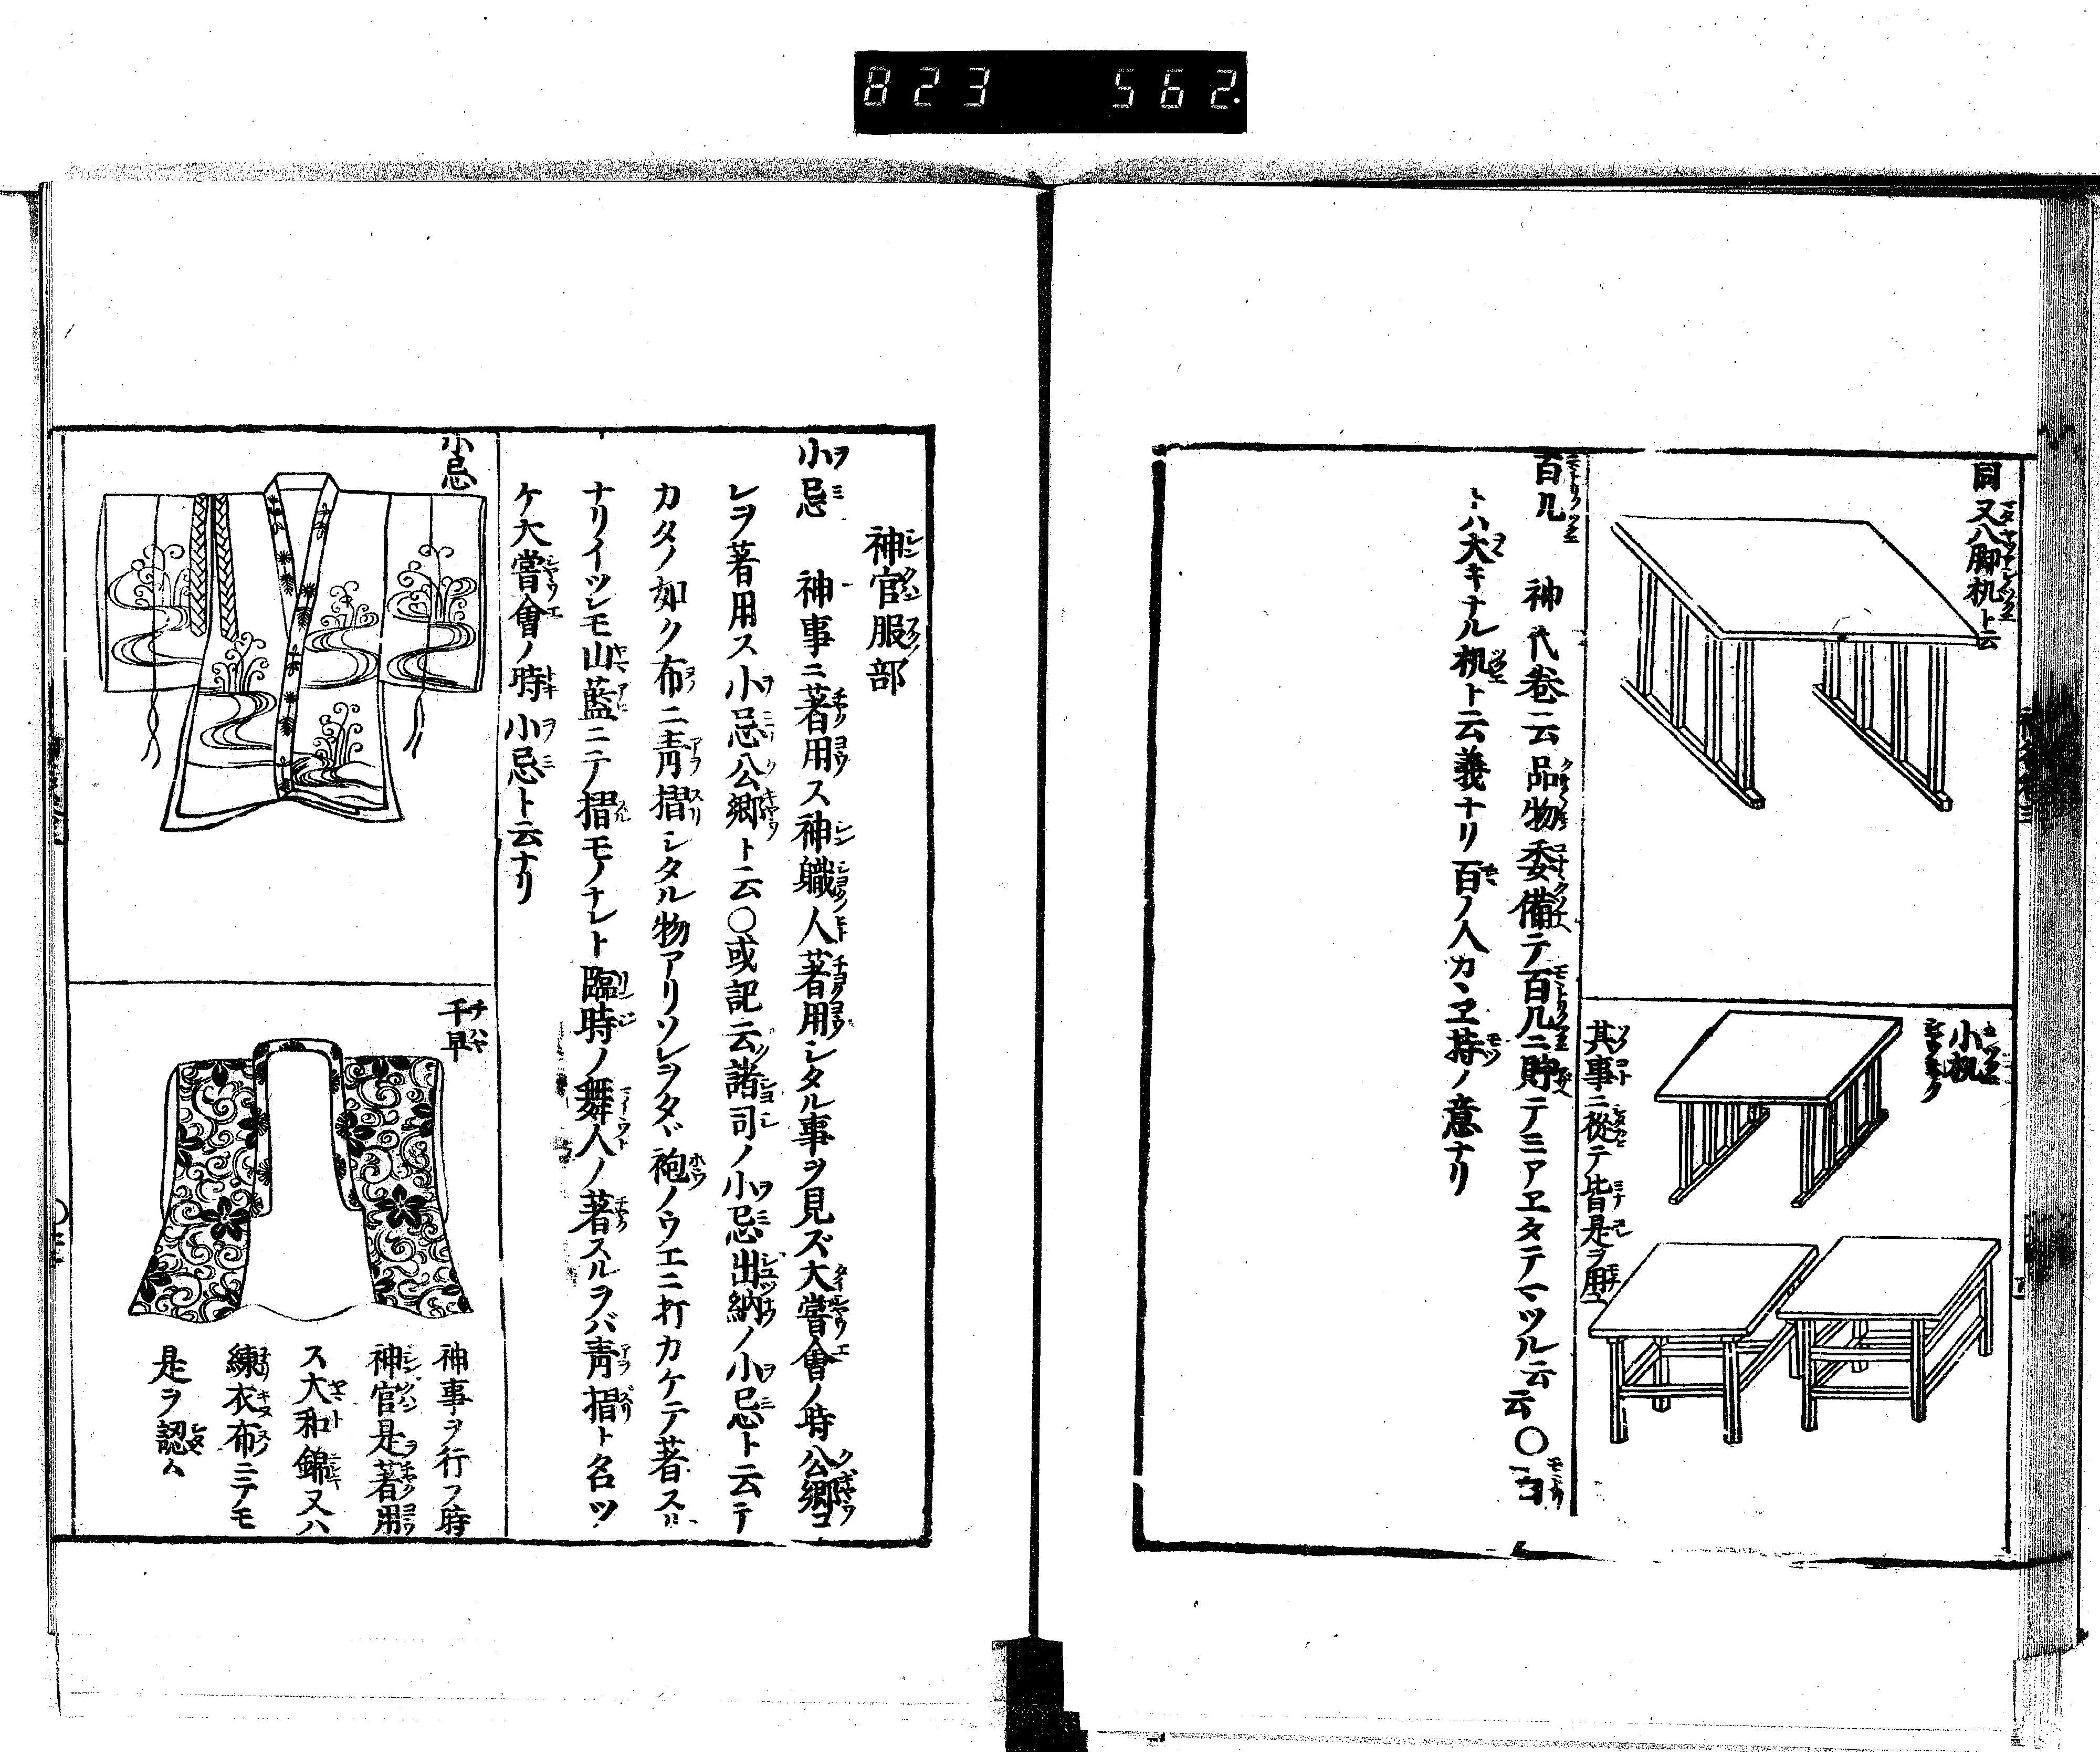 823 562.
同 又八脚机ト云
小机
其事ニ從テ皆是ヲ用ユ
百几 神代卷ニ云品物委備テ百几ニ貯テミアヱタテマツル云云〇
トハ大キナル机ト云義ナリ百ノ人カヽヱ持ノ意ナリ
神官服部
小忌 神事ニ著用ス神職人著用シタル事ヲ見ズ大嘗會ノ時公卿コ
レヲ著用ス小忌公卿ト云〇或記云諸司ノ小忌出納ノ小忌ト云テ
カタノ如ク布ニ青摺シタル物アリソレヲタヾ袍ノウエニ打カケテ著ス
ナリイツレモ山藍ニテ摺モノナレト臨時ノ舞人ノ著スルヲバ青摺ト名ツ
ケ大嘗會ノ時小忌ト云ナリ
小忌
千早
神事ヲ行フ時
神官是ヲ著用
ス大和錦又ハ
練衣布ニテモ
是ヲ認ム